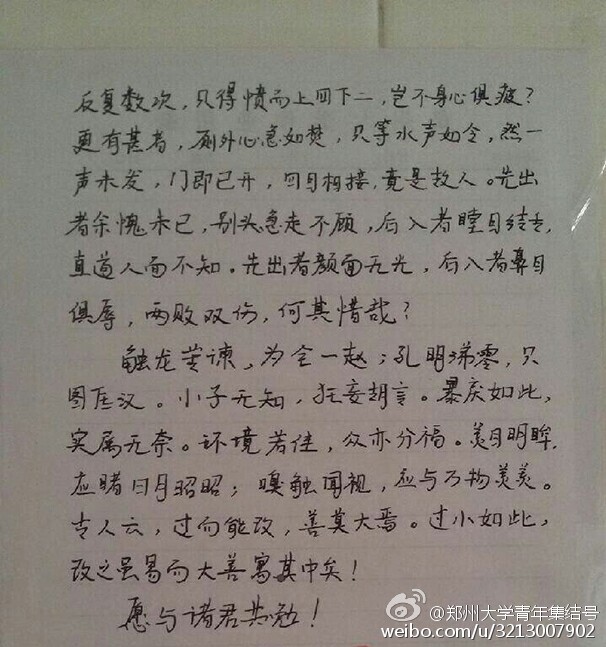 反复数次，只得愤而上四下二，岂不身心俱疲？
更有甚者，厕外心急如焚，只等水声如令，然一
声未发，门即已开，四目相接，竟是故人。先出
者余愧未已，别头急走不顾，后入者瞠目结舌，
直道人面不知。先出者颜面无光，后入者鼻目
俱辱，两败双伤，何其惜哉？
触龙苦谏，为全一赵；孔明涕零，只
图匡汉。小子无知，狂妄胡言。暴戾如此，
实属无奈。环境若佳，众亦分福。美目明眸，
应睹日月昭昭；嗅触闻视，应与万物美美。
古人云，过而能改，善莫大焉。过小如此，
改之虽易而大善寓其中矣！
愿与诸君共勉！
@郑州大学青年集结号
weibo.com/u/3213007902